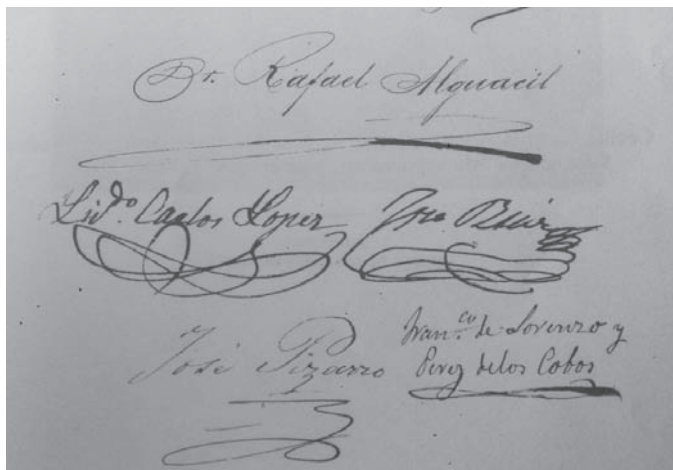 Dr. Rafael Alguacil
Lizdo. Carlos Lopez
José
José Pizarro
Franco. de Lorenzo y
Perez de los Cobos